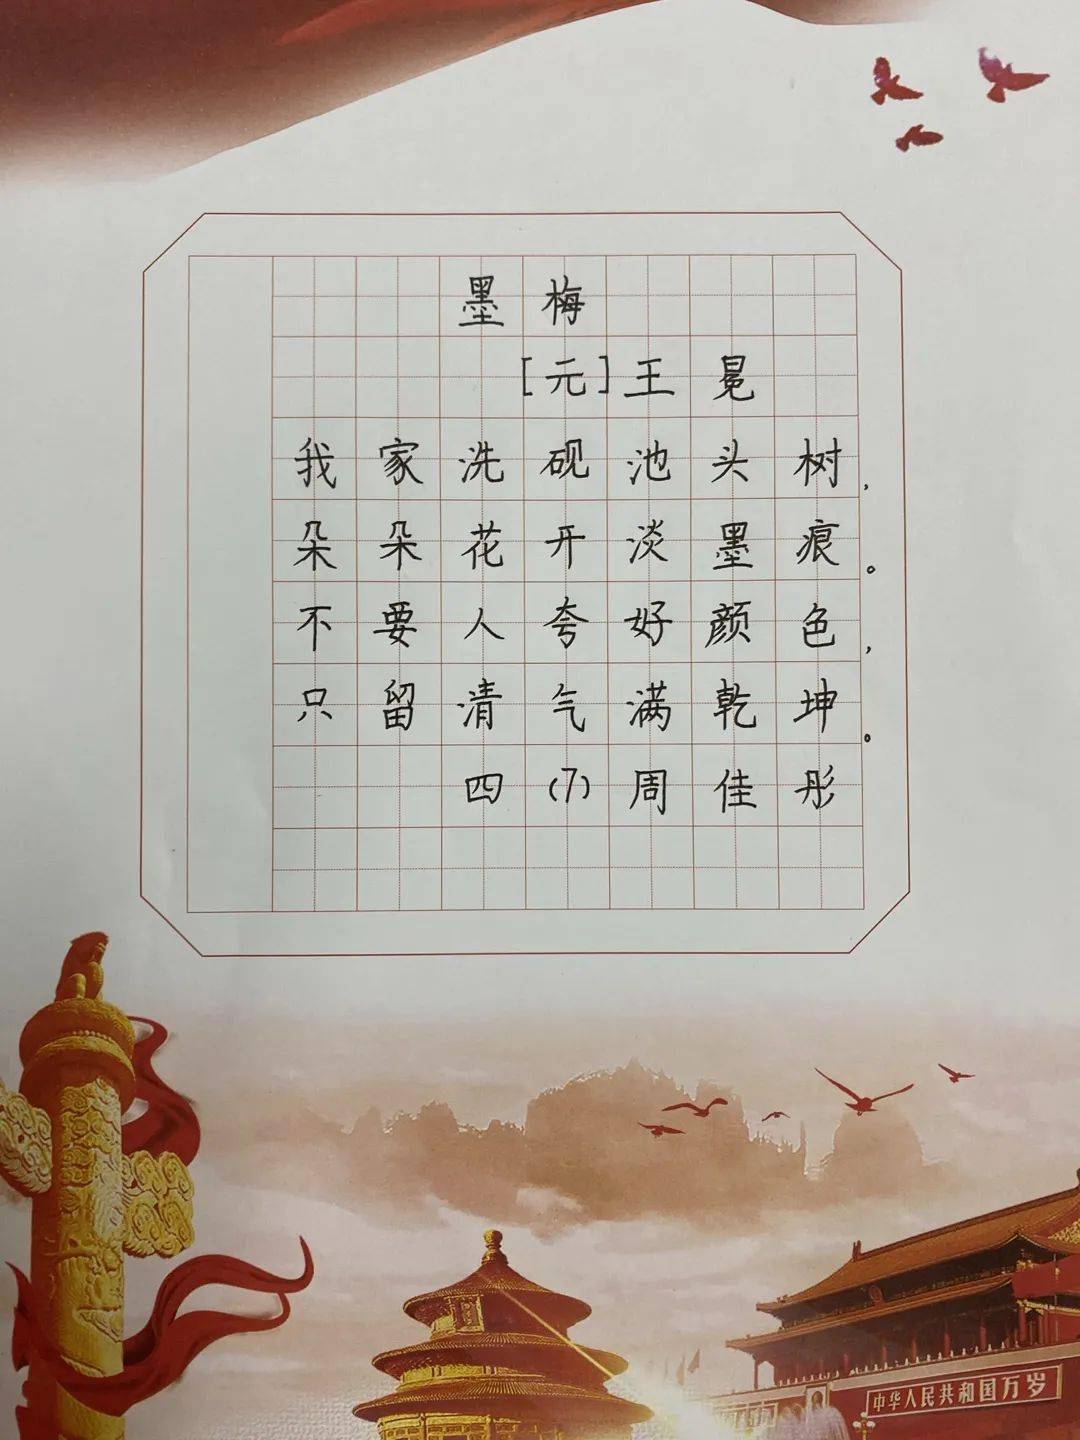 墨梅
[元]王冕
我家洗砚池头树,
朵朵花开淡墨痕。
不要人夸好颜色,
只留清气满乾坤。
四(7)周佳彤
中华人民共和国万岁